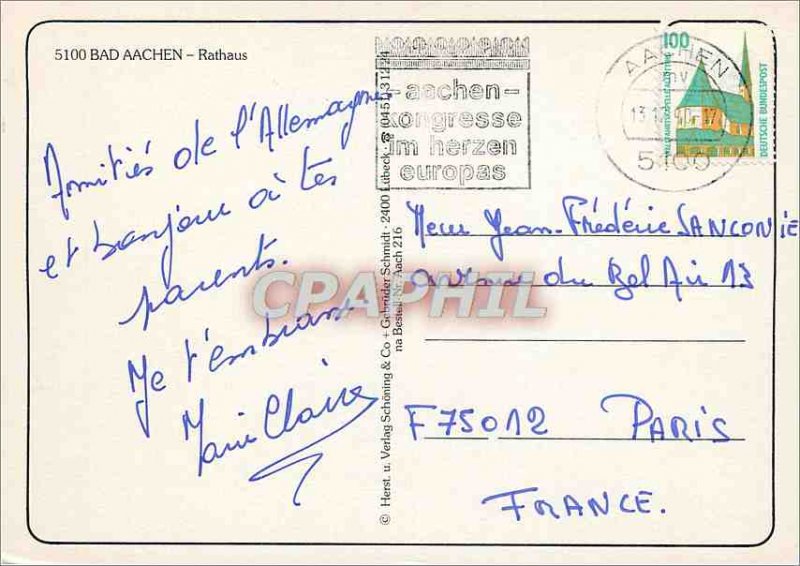 5100 BAD AACHEN – Rathaus
Amitiés de l'Allemagne
et bonjour à tes
parents.
Je t'embrasse
Marie Claire
© Herst. u. Verlag Schöning & Co + Gebrüder Schmidt · 2400 Lübeck · ☎ (0451) 31224
na Bestell-Nr. Aach 216
- aachen -
kongresse
im herzen
europas
AACHEN
mv
5100
100
WALLFAHRTSKAPELLE ALTÖTTING
DEUTSCHE BUNDESPOST
Jean-Frédéric SANCONIE
avenue du Bel Air 13
F 75012 PARIS
FRANCE.
CPAPHIL